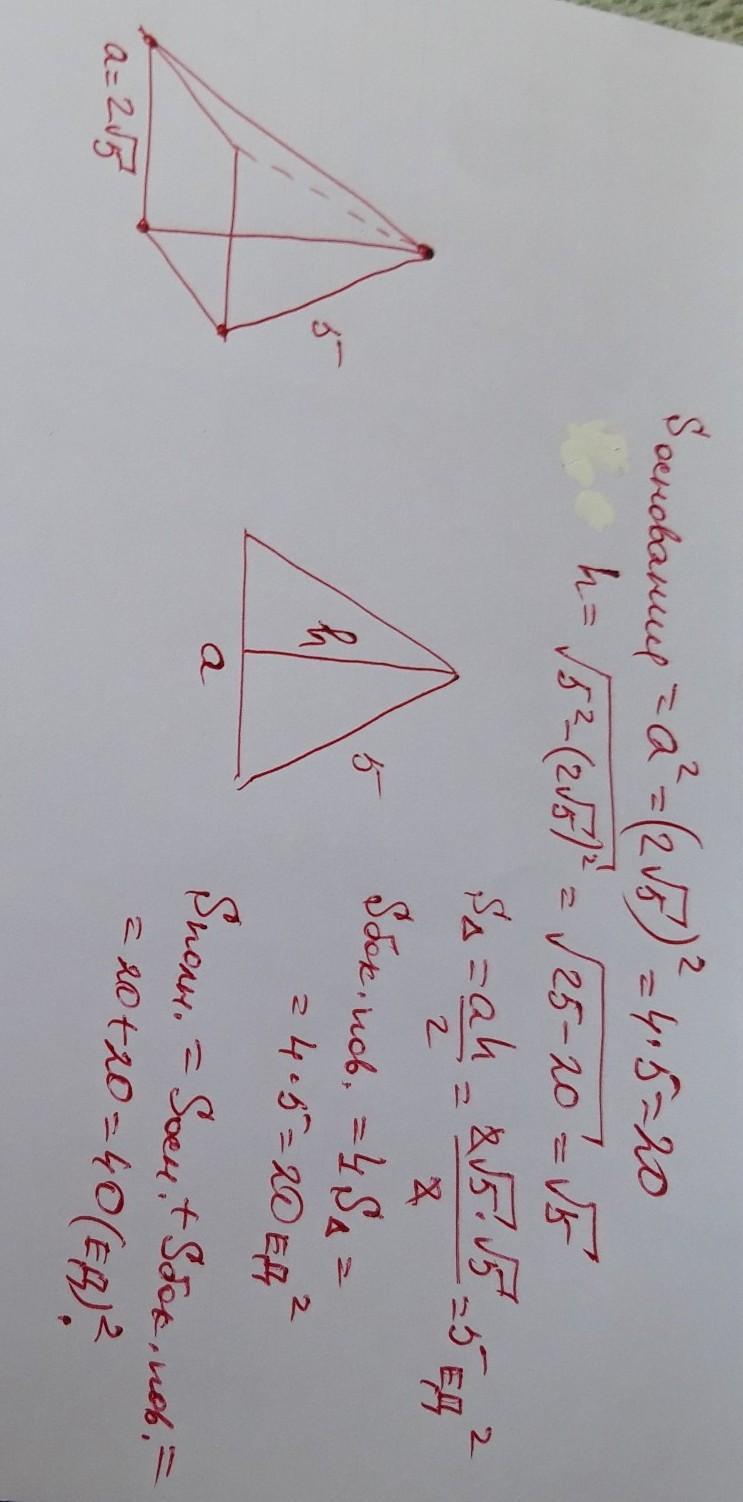 a = 2√5
5
S основания = a² = (2√5)² = 4·5 = 20
h = √5² - (2√5)² = √25 - 20 = √5
h
5
a
S△ = ah/2 = 2√5·√5/2 = 5 ЕД²
Sбок. пов. = 4S△ =
= 4·5 = 20 ЕД²
Sполн. = Sосн. + Sбок. пов. =
= 20 + 20 = 40 (ЕД)².